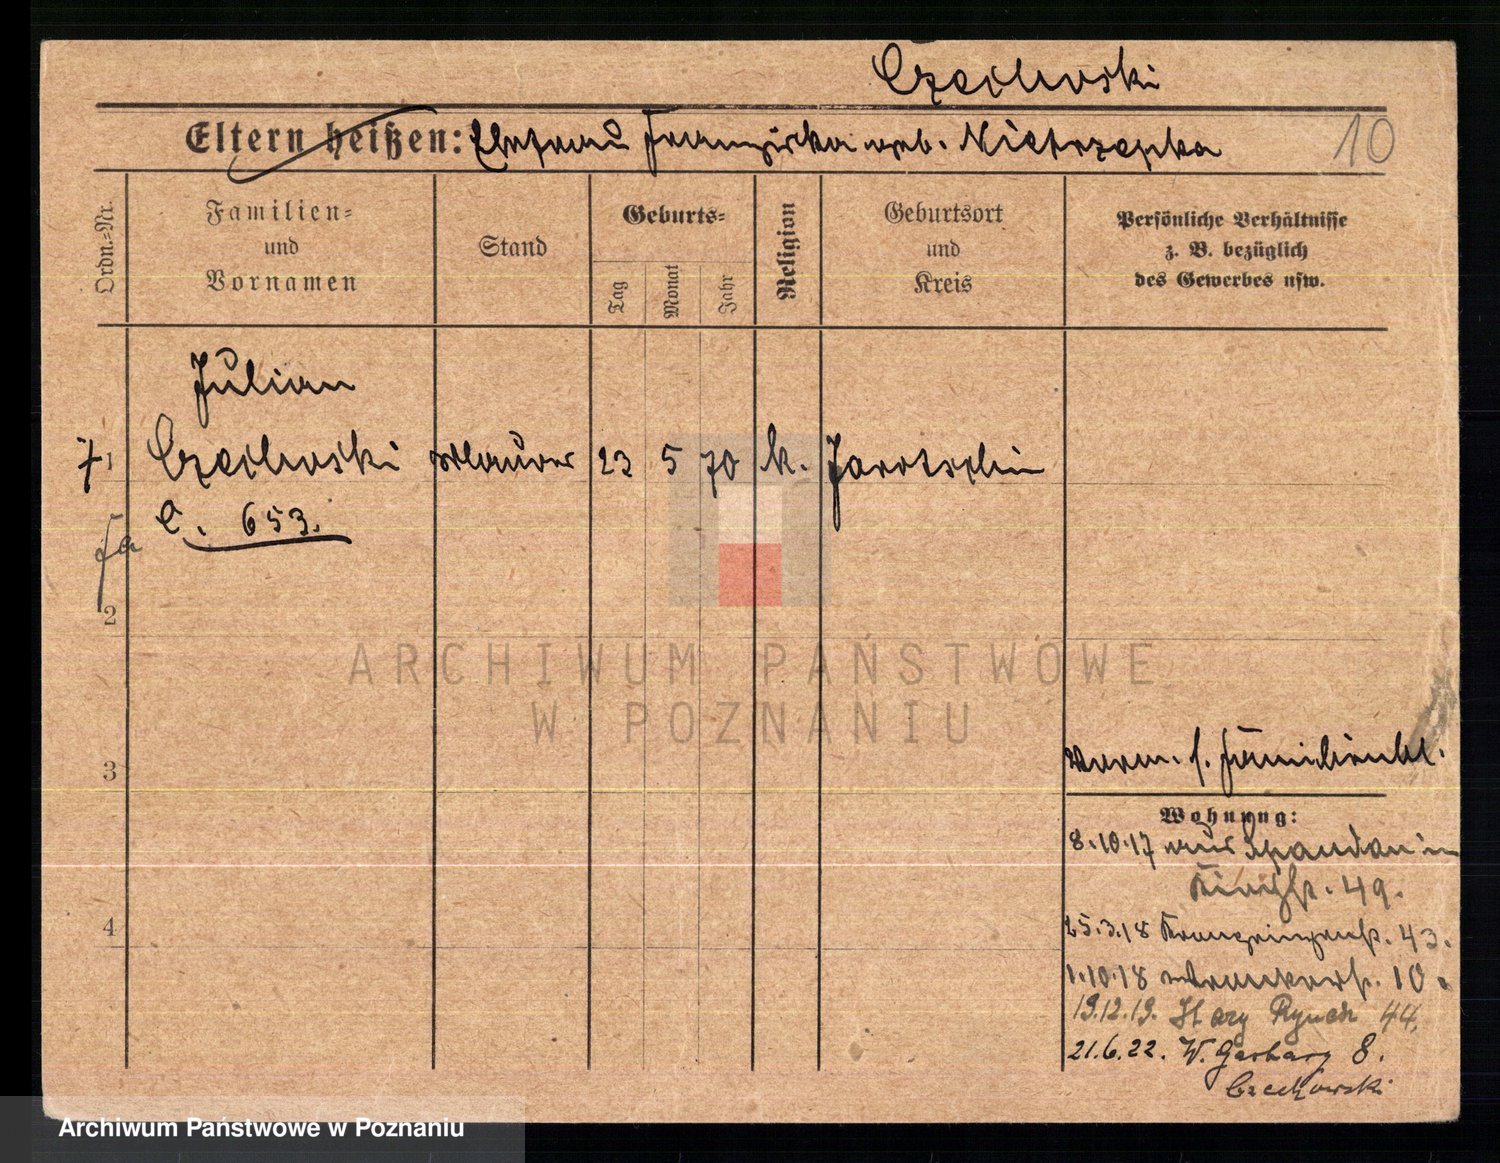 Czechowski
Eltern heißen: Ehefrau Franziska geb. Nietrzepka
10
Ordn.=Nr.
Familien=
und
Vornamen
Stand
Geburts=
Tag
Monat
Jahr
Religion
Geburtsort
und
Kreis
Persönliche Verhältnisse
z. B. bezüglich
des Gewerbes usw.
Julian
1 Czechowski Maurer 23 5 70 k. Jarotschin
C. 653.
2
3
4
verm. s. Familienbl.
Wohnung:
8.10.17 aus Spandau in
Kirchst. 49.
25.3.18 Kronprinzenst. 43.
1.10.18 10
19.12.19. Stary Rynek 44.
21.6.22. W. Garbary 8.
Czechowski
ARCHIWUM PAŃSTWOWE
W POZNANIU
Archiwum Państwowe w Poznaniu